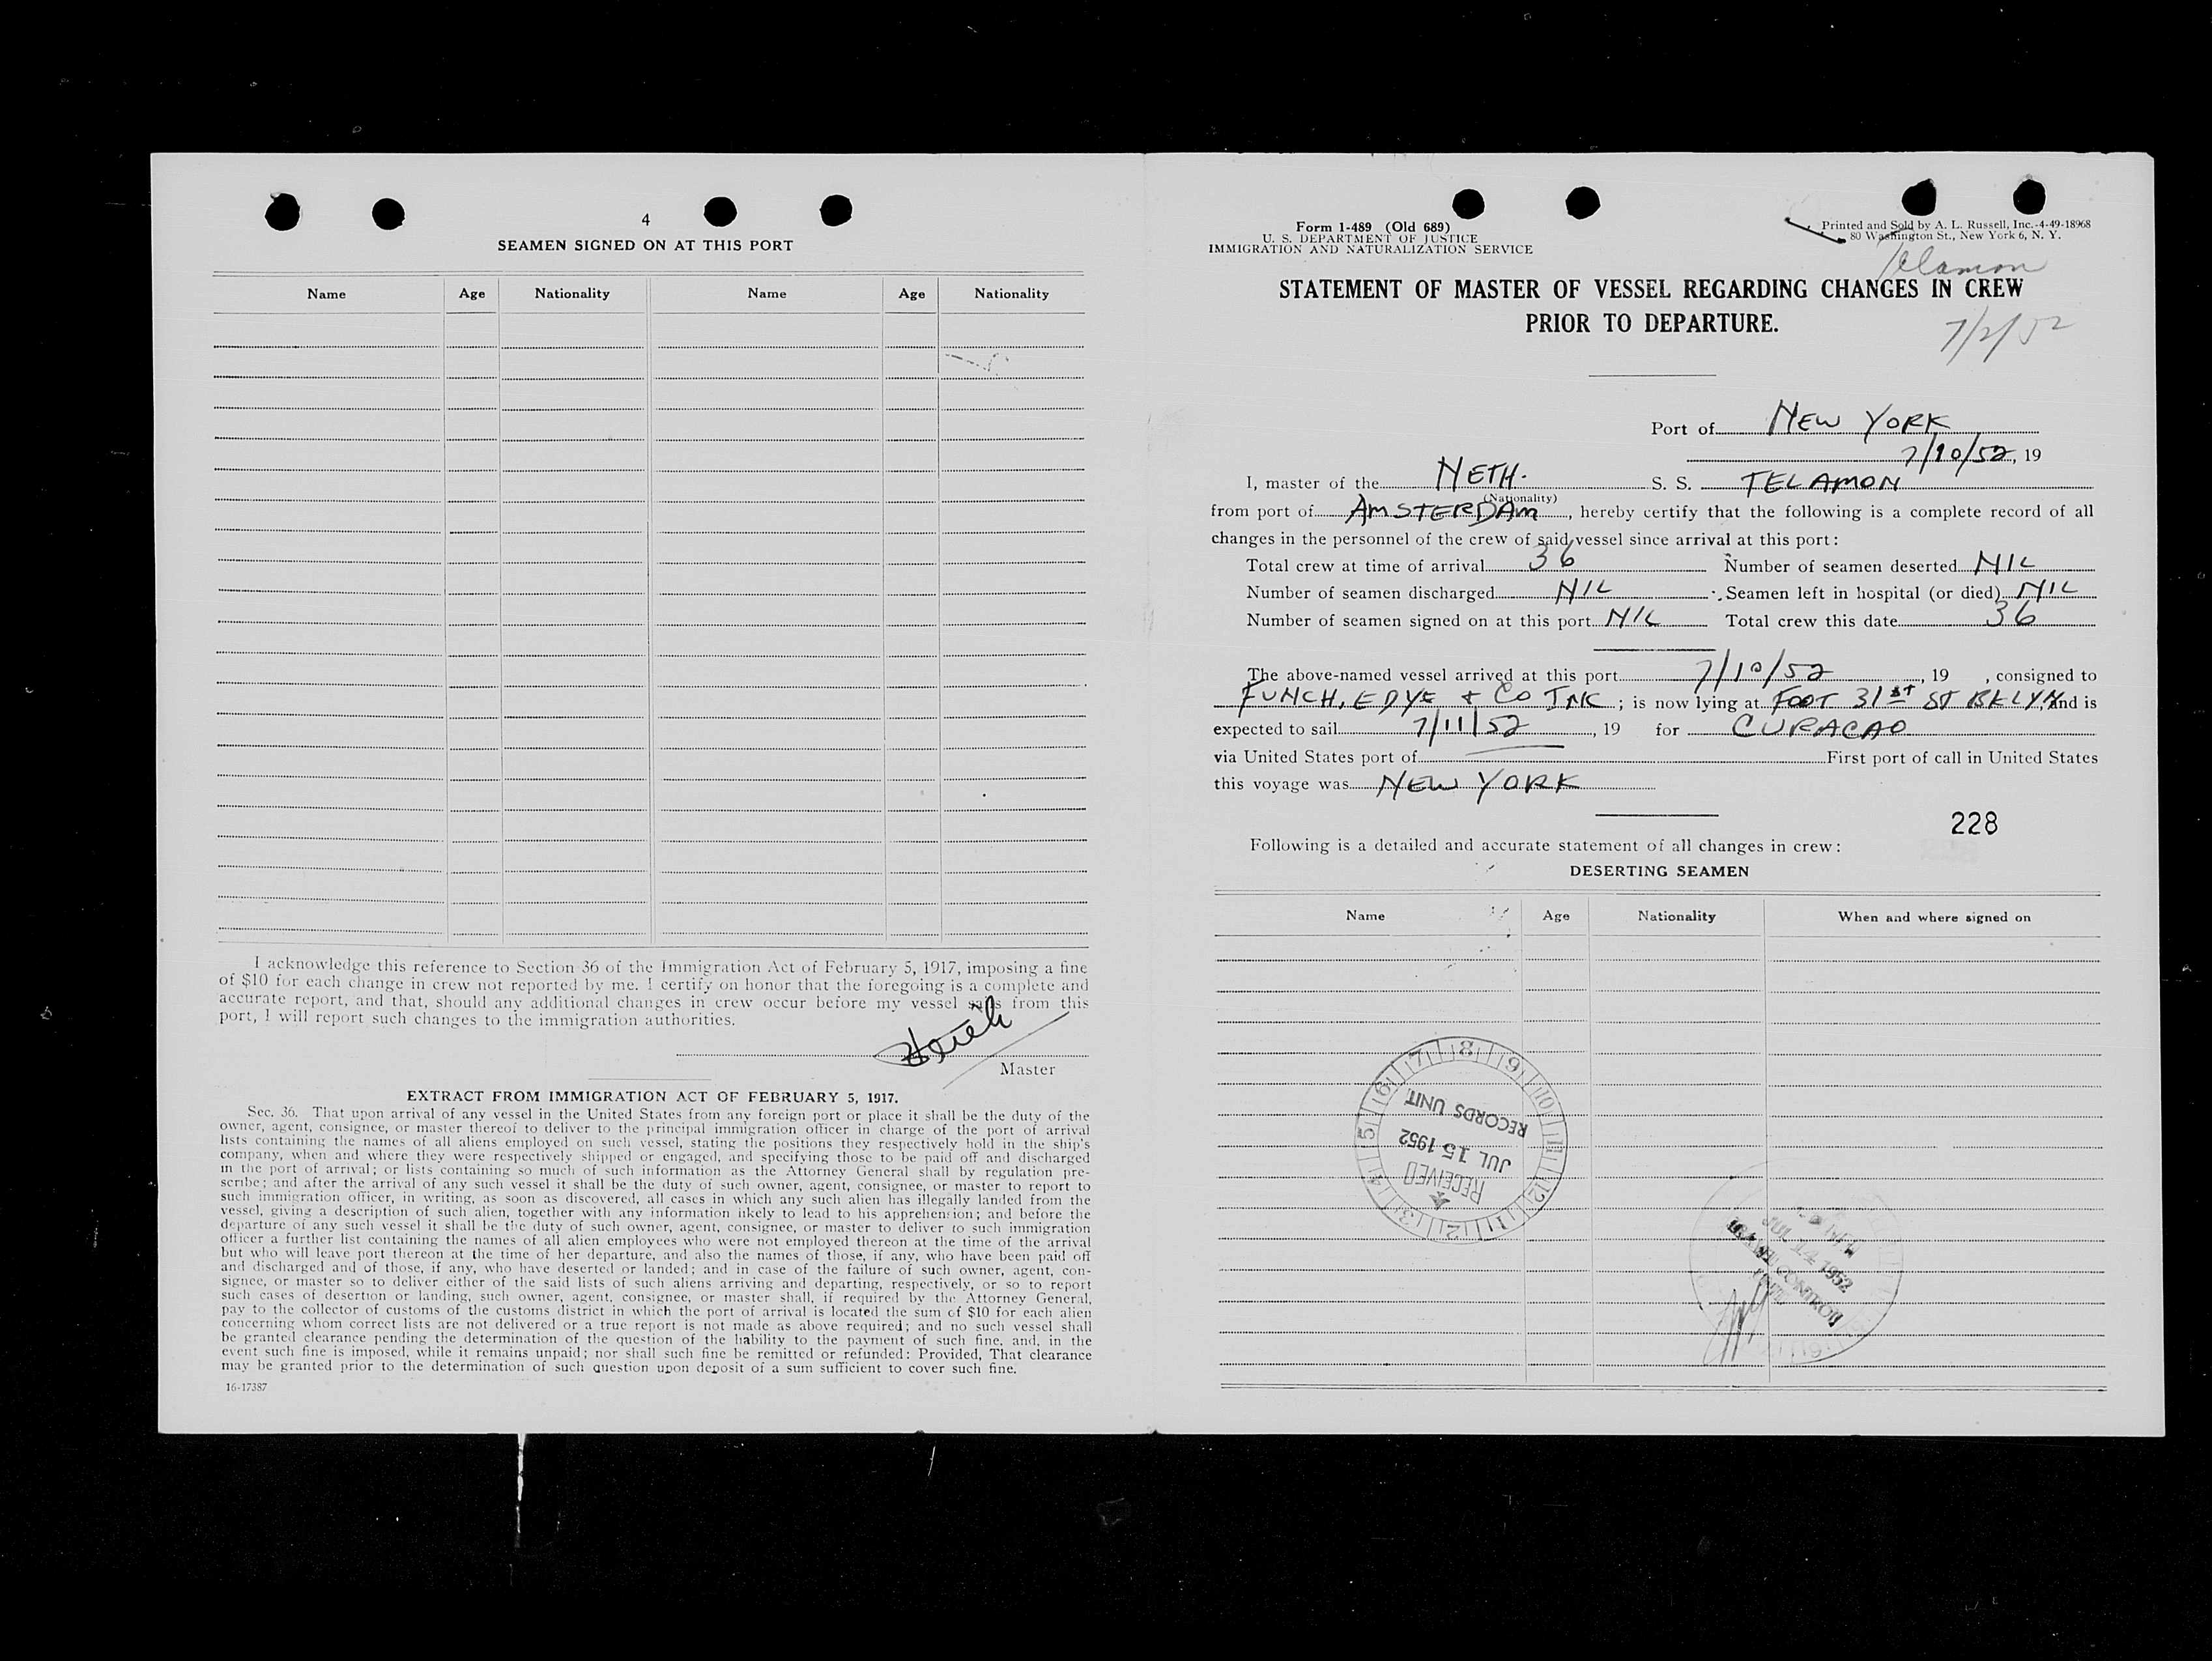 4
SEAMEN SIGNED ON AT THIS PORT
Name Age Nationality Name Age Nationality
I acknowledge this reference to Section 36 of the Immigration Act of February 5, 1917, imposing a fine
of $10 for each change in crew not reported by me. I certify on honor that the foregoing is a complete and
accurate report, and that, should any additional changes in crew occur before my vessel sails from this
port, I will report such changes to the immigration authorities.
Master
EXTRACT FROM IMMIGRATION ACT OF FEBRUARY 5, 1917.
Sec. 36. That upon arrival of any vessel in the United States from any foreign port or place it shall be the duty of the
owner, agent, consignee, or master thereof to deliver to the principal immigration officer in charge of the port of arrival
lists containing the names of all aliens employed on such vessel, stating the positions they respectively hold in the ship's
company, when and where they were respectively shipped or engaged, and specifying those to be paid off and discharged
in the port of arrival; or lists containing so much of such information as the Attorney General shall by regulation pre-
scribe; and after the arrival of any such vessel it shall be the duty of such owner, agent, consignee, or master to report to
such immigration officer, in writing, as soon as discovered, all cases in which any such alien has illegally landed from the
vessel, giving a description of such alien, together with any information likely to lead to his apprehension; and before the
departure of any such vessel it shall be the duty of such owner, agent, consignee, or master to deliver to such immigration
officer a further list containing the names of all alien employees who were not employed thereon at the time of the arrival
but who will leave port thereon at the time of her departure, and also the names of those, if any, who have been paid off
and discharged and of those, if any, who have deserted or landed; and in case of the failure of such owner, agent, con-
signee, or master so to deliver either of the said lists of such aliens arriving and departing, respectively, or so to report
such cases of desertion or landing, such owner, agent, consignee, or master shall, if required by the Attorney General,
pay to the collector of customs of the customs district in which the port of arrival is located the sum of $10 for each alien
concerning whom correct lists are not delivered or a true report is not made as above required; and no such vessel shall
be granted clearance pending the determination of the question of the liability to the payment of such fine, and, in the
event such fine is imposed, while it remains unpaid; nor shall such fine be remitted or refunded: Provided, That clearance
may be granted prior to the determination of such question upon deposit of a sum sufficient to cover such fine.
16-17387
Form 1-489 (Old 689)
U. S. DEPARTMENT OF JUSTICE
IMMIGRATION AND NATURALIZATION SERVICE
Printed and Sold by A. L. Russell, Inc.-4-49-18968
80 Washington St., New York 6, N. Y.
Telamon
STATEMENT OF MASTER OF VESSEL REGARDING CHANGES IN CREW
PRIOR TO DEPARTURE.
7/2/52
Port of NEW YORK
7/10/52, 19
I, master of the NETH. S. S. TELAMON
(Nationality)
from port of AMSTERDAM, hereby certify that the following is a complete record of all
changes in the personnel of the crew of said vessel since arrival at this port:
Total crew at time of arrival 36 Number of seamen deserted NIL
Number of seamen discharged NIL Seamen left in hospital (or died) NIL
Number of seamen signed on at this port NIL Total crew this date 36
The above-named vessel arrived at this port 7/10/52, 19 , consigned to
FUNCH, EDYE & CO INC; is now lying at FOOT 31ST ST BKLYN, and is
expected to sail 7/11/52, 19 for CURACAO
via United States port of First port of call in United States
this voyage was NEW YORK
228
Following is a detailed and accurate statement of all changes in crew:
DESERTING SEAMEN
Name Age Nationality When and where signed on
RECEIVED
JUL 15 1952
RECORDS UNIT
JUL 14 1952
CONTROL